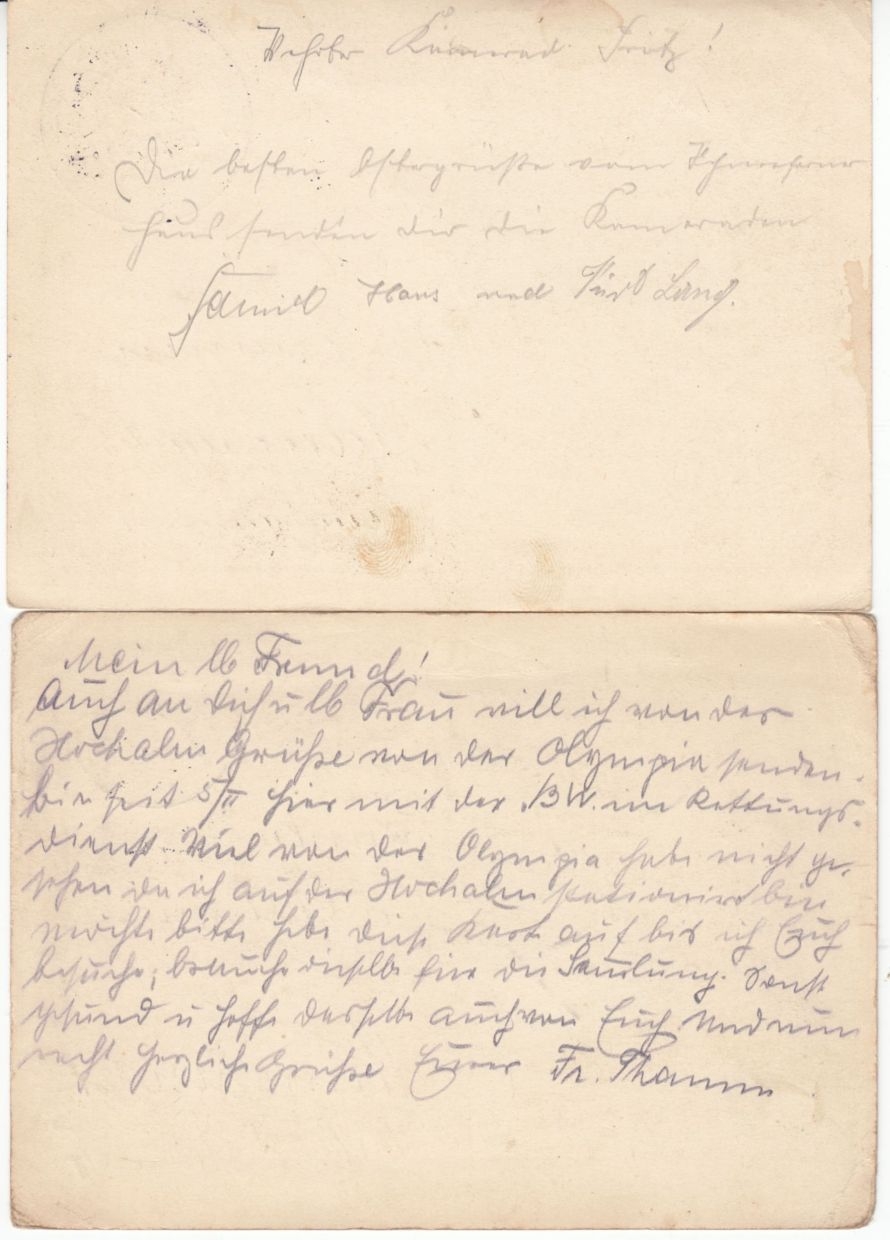 Werter Kamerad Fritz!
Die besten Ostergrüße vom Schneeferner
haus senden Dir die Kameraden
Hans und Lang.
Mein lb Freund!
Auch an Dich u lb Frau will ich von der
Hochalm Grüße von der Olympia senden.
bin seit 5/II hier mit der BW. im Rettungs-
dienst Viel von der Olympia habe nicht ge-
sehen da ich auf der Hochalm stationirt bin
möchte bitte hebe diese Karte auf bis ich Euch
besuche, brauche dieselbe für die Samlung. Sonst
gesund u hoffe dasselbe auch von Euch Und nun
recht herzliche Grüße Eurer Fr. Thamm